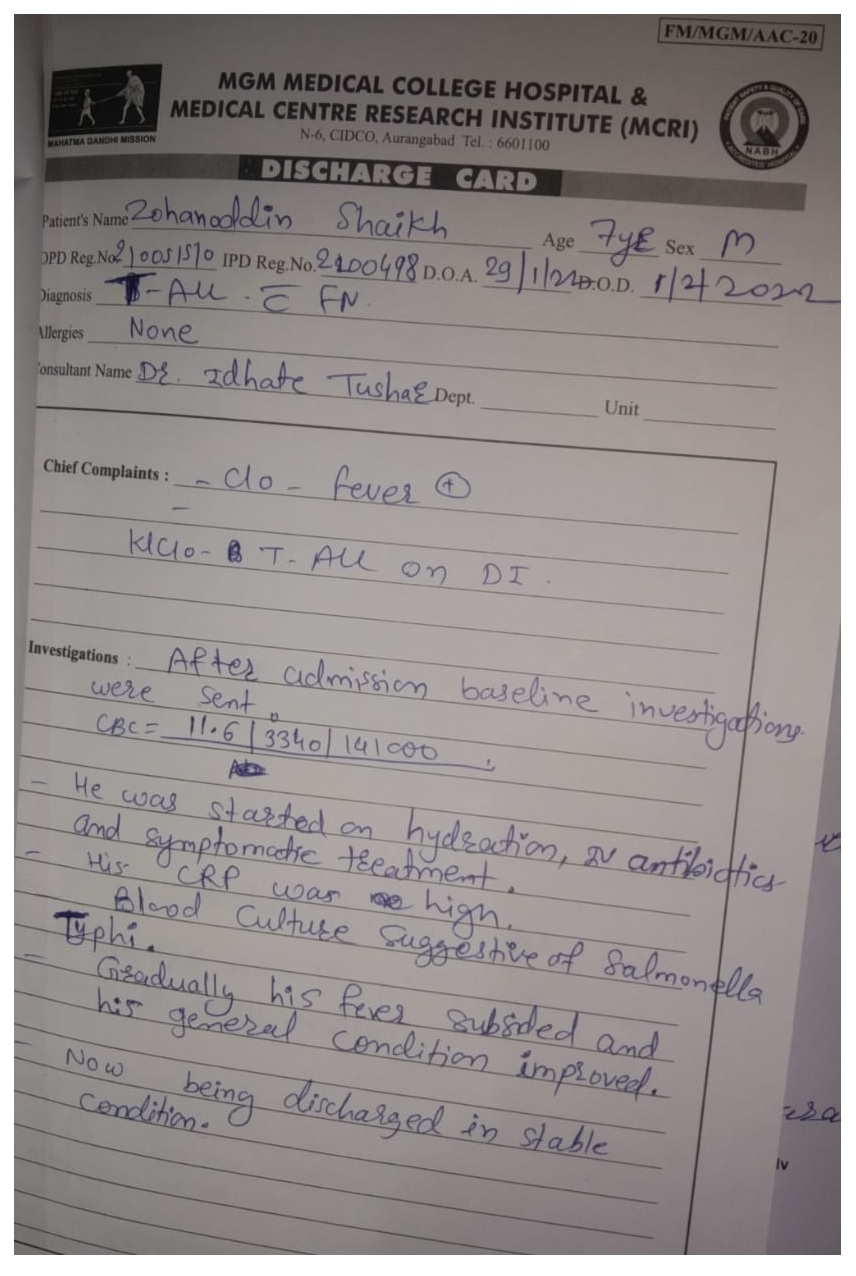 FM/MGM/AAC-20
MGM MEDICAL COLLEGE HOSPITAL &
MEDICAL CENTRE RESEARCH INSTITUTE (MCRI)
N-6, CIDCO, Aurangabad Tel. : 6601100
MAHATMA GANDHI MISSION
NABH
DISCHARGE CARD
Patient's Name Zohanoddin Shaikh Age 7yr Sex M
OPD Reg.No. 210051510 IPD Reg.No. 2100498 D.O.A. 29/1/22 D.O.D. 1/2/2022
Diagnosis T-ALL . c̄ FN.
Allergies None
Consultant Name Dr. Idhate Tushar Dept. Unit
Chief Complaints : - C/o - fever ⊕
-
K/C/o - T-ALL on DI .
Investigations : After admission baseline investigations
were sent.
CBC = 11.6 | 3340 | 141000
- He was started on hydration, IV antibiotics
and symptomatic treatment.
- His CRP was high.
Blood Culture suggestive of Salmonella
Typhi.
- Gradually his fever subsided and
his general condition improved.
- Now being discharged in stable
condition.
iv